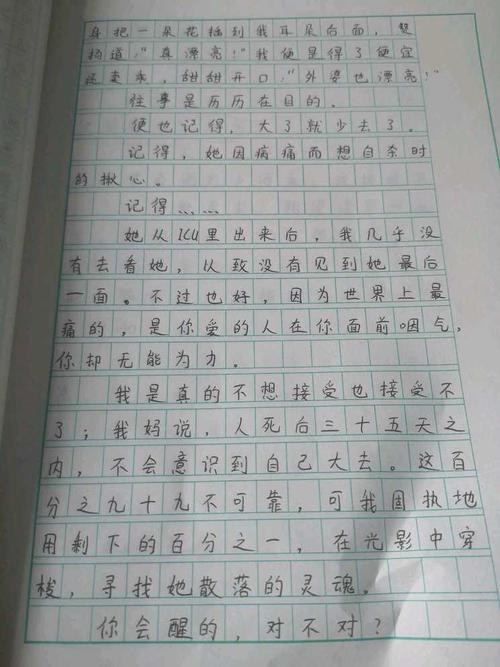 身把一朵花插到我耳朵后面，赞
扬道，“真漂亮！”我便是得了便宜
还卖乖，甜甜开口，“外婆也漂亮！”
往事是历历在目的。
便也记得，大了就少去了。
记得，她因病痛而想自杀时
的揪心。
记得……
她从ICU里出来后，我几乎没
有去看她，以致没有见到她最后
一面。不过也好，因为世界上最
痛的，是你爱的人在你面前咽气，
你却无能为力。
我是真的不想接受也接受不
了；我妈说，人死后三十五天之
内，不会意识到自己大去。这百
分之九十九不可靠，可我固执地
用剩下的百分之一，在光影中穿
梭，寻找她散落的灵魂。
你会醒的，对不对？